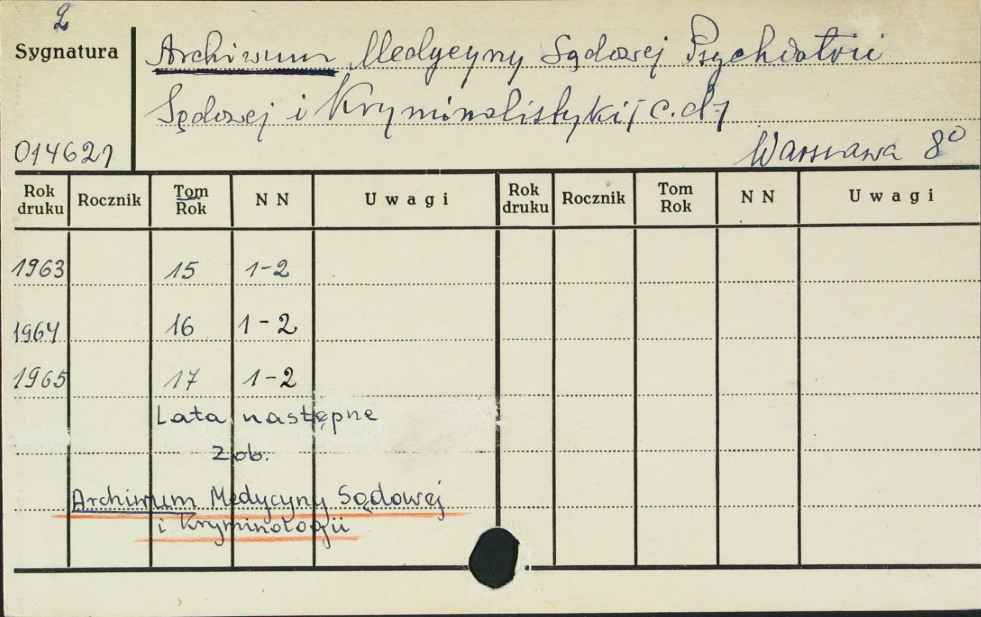 2
Sygnatura
Archiwum Medycyny Sądowej Psychiatrii
Sądowej i Kryminalistyki (c.d.)
014621
Warszawa 8°
Rok druku Rocznik Tom Rok N N Uwagi Rok druku Rocznik Tom Rok N N Uwagi
1963 15 1-2
1964 16 1-2
1965 17 1-2
Lata następne
zob.
Archiwum Medycyny Sądowej
i Kryminologii